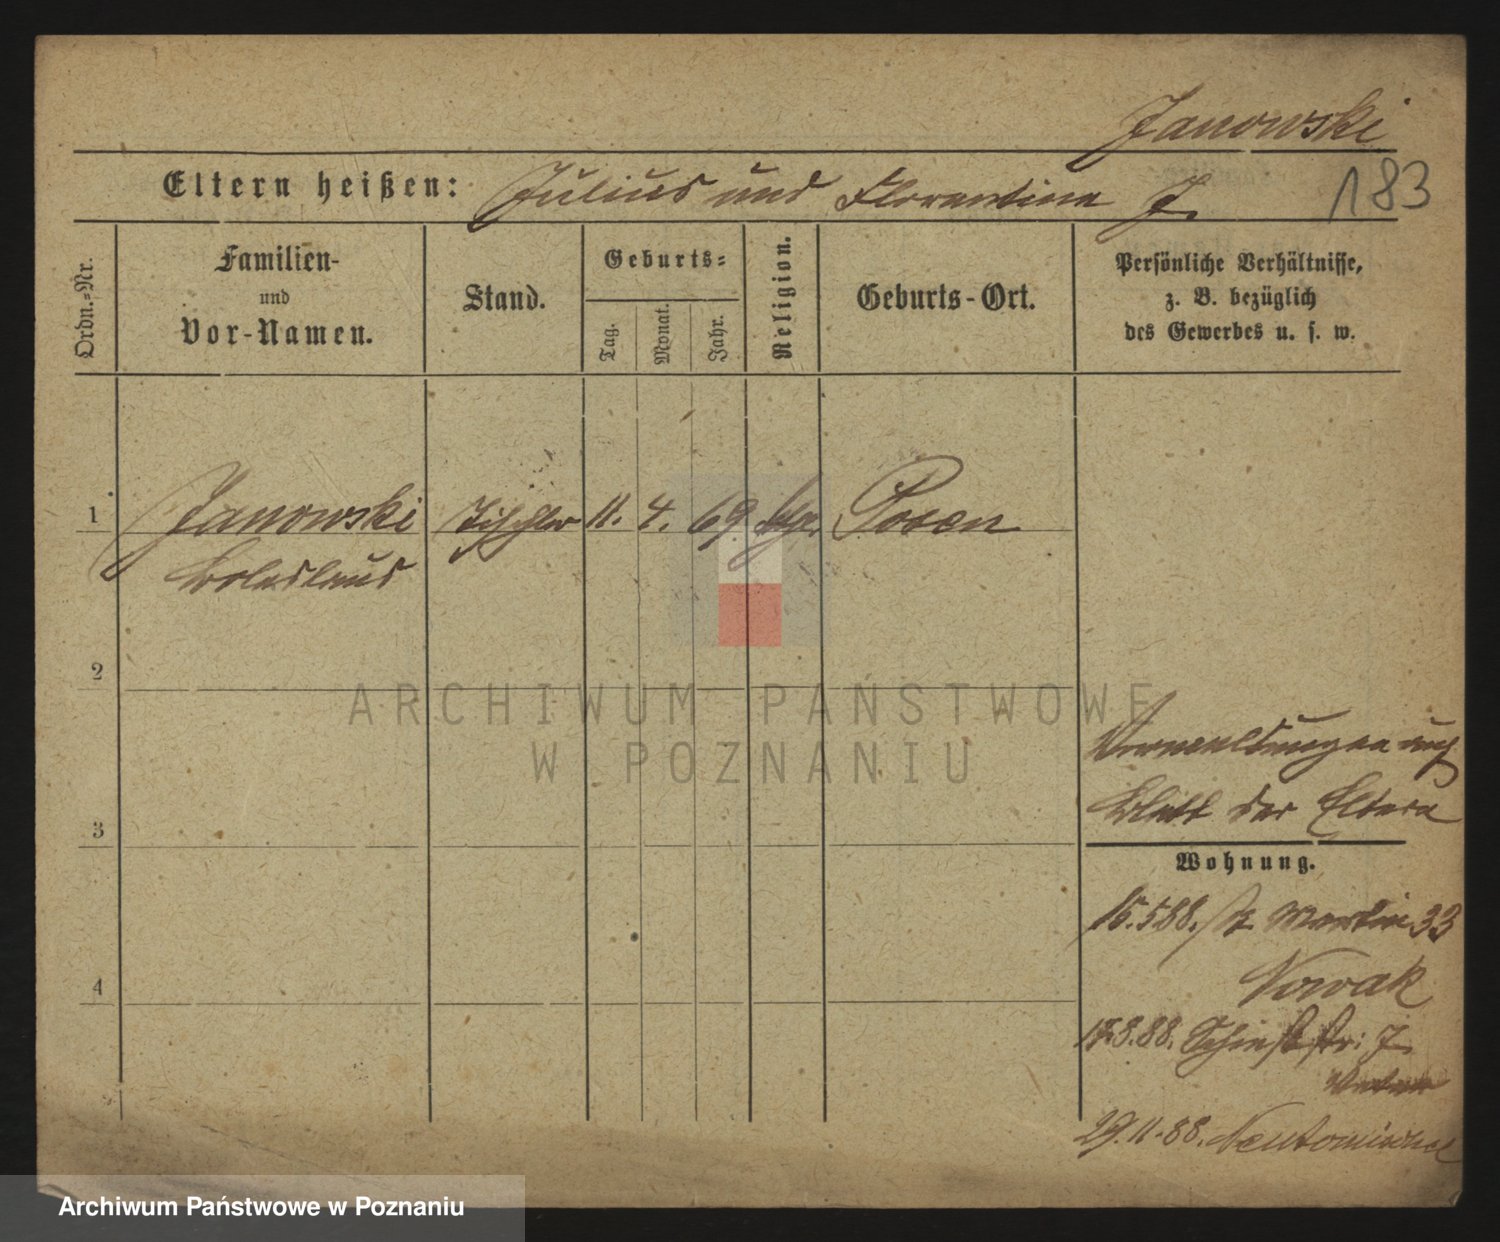 Janowski
Eltern heißen: Julius und Florentina J.
183
Ordn.-Nr.
Familien-
und
Vor-Namen.
Stand.
Geburts-
Tag.
Monat.
Jahr.
Religion.
Geburts-Ort.
Persönliche Verhältnisse,
z. B. bezüglich
des Gewerbes u. s. w.
1 Janowski Tischler 11. 4. 69 Posen
Boleslaus
2
ARCHIWUM PAŃSTWOWE
W POZNANIU
3
4
Blatt der Eltern
Wohnung.
15.5.88. St Martin 33
Nowak
17.8.88. Schießstr: 7.
29.11.88. Neutomischel
Archiwum Państwowe w Poznaniu